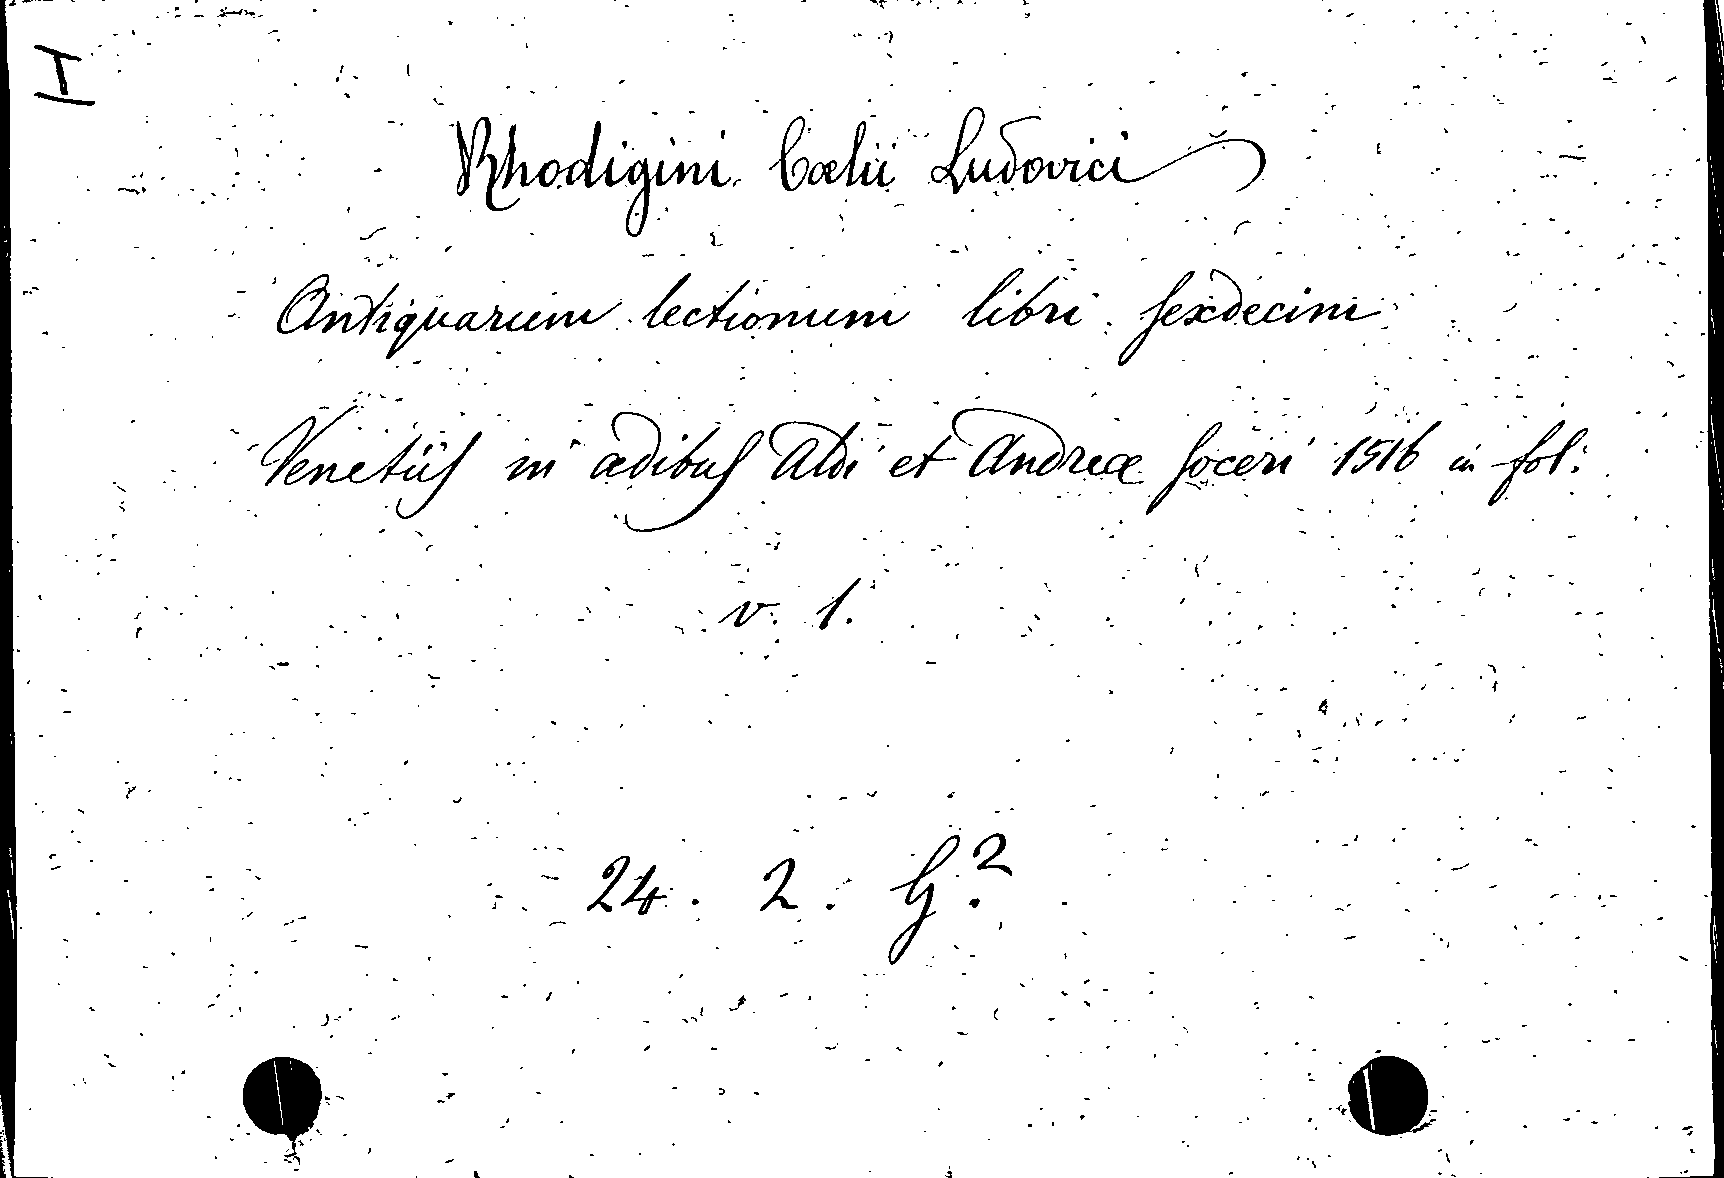 I
Rhodigini Cœlii Ludovici
Antiquarum lectionum libri sexdecim
Venetiis in ædibus Aldi et Andreæ soceri 1516 in fol:
v. 1.
24. 2. G.²